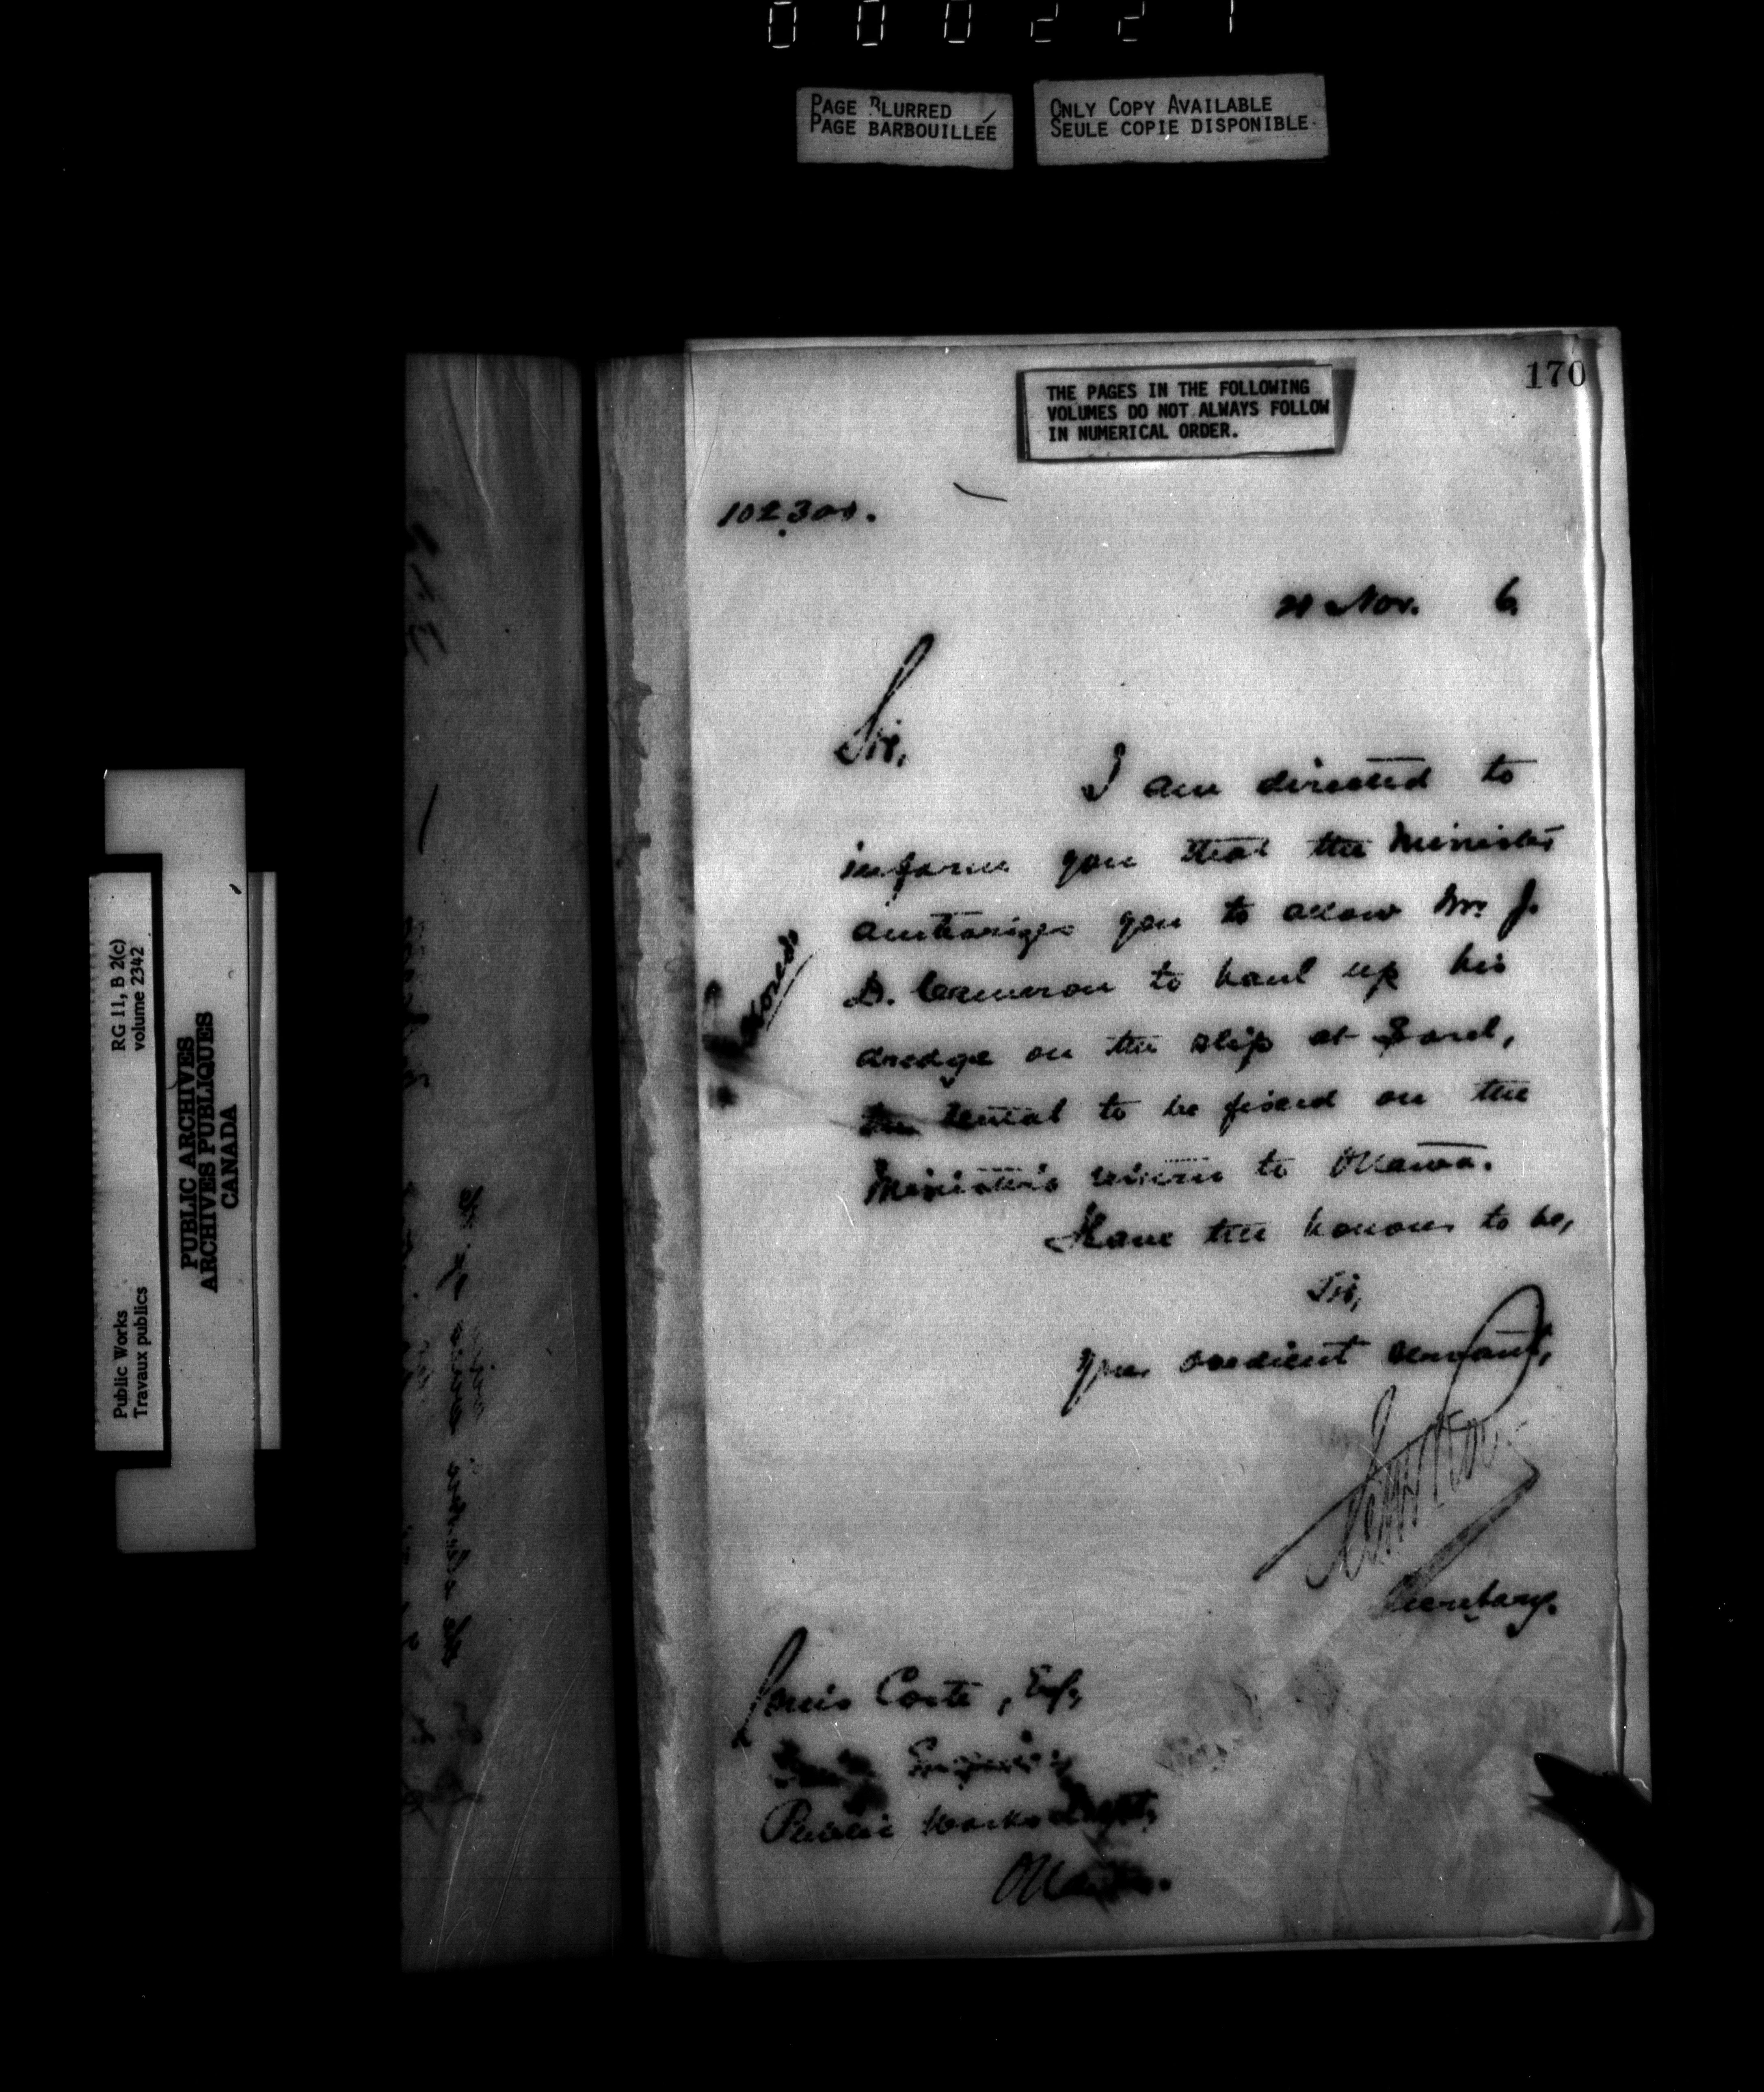 000221
PAGE BLURRED
PAGE BARBOUILLÉE
ONLY COPY AVAILABLE
SEULE COPIE DISPONIBLE
170
THE PAGES IN THE FOLLOWING
VOLUMES DO NOT ALWAYS FOLLOW
IN NUMERICAL ORDER.
102300.
Nov. 6
Sir,
I am directed to
inform you that the Minister
authorizes you to allow Mr. J.
D. Cameron to haul up his
dredge on the slip at Sorel,
the rental to be fixed on the
Minister's return to Ottawa.
Have the honour to be,
Sir,
Your obedient servant,
Secretary.
Louis Coste, Esq,
Engineer
Public Works Dept,
Ottawa.
Public Works
Travaux publics
RG 11, B 2(c)
volume 2342
PUBLIC ARCHIVES
ARCHIVES PUBLIQUES
CANADA